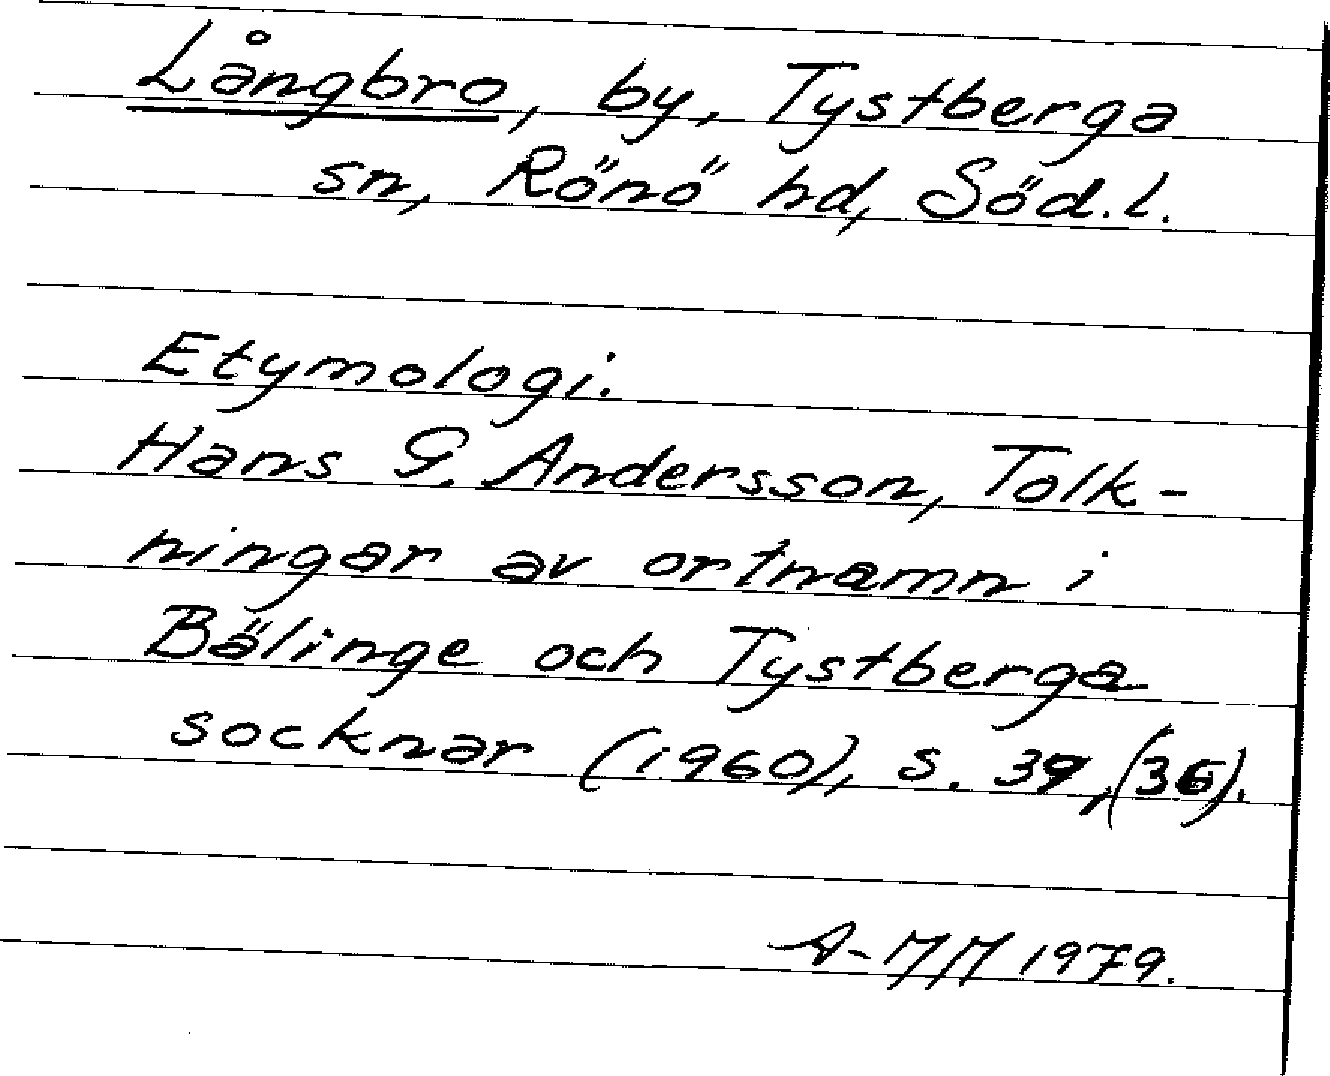 Långbro, by, Tystberga
sn, Rönö hd, Söd.l.
Etymologi.
Hans G. Andersson, Tolk-
ningar av ortnamn i
Bälinge och Tystberga
socknar (1960), s. 39, (36).
A-MM 1979.